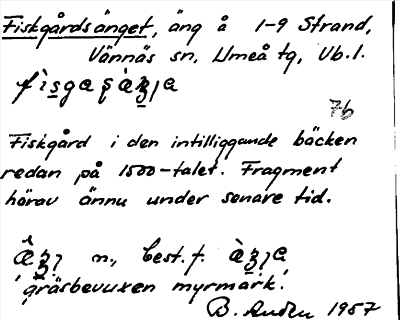 Fiskgårdsänget, äng å 1-9 Strand,
Vännäs sn, Umeå tg, Vb.l.
7b
Fiskgård i den intilliggande bäcken
redan på 1500-talet. Fragment
härav ännu under senare tid.
n., best.f.
'gräsbevuxen myrmark'.
B. 1957